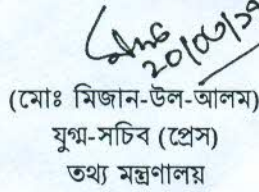 (মোঃ মিজান-উল-আলম)
যুগ্ম-সচিব (প্রেস)
তথ্য মন্ত্রণালয়